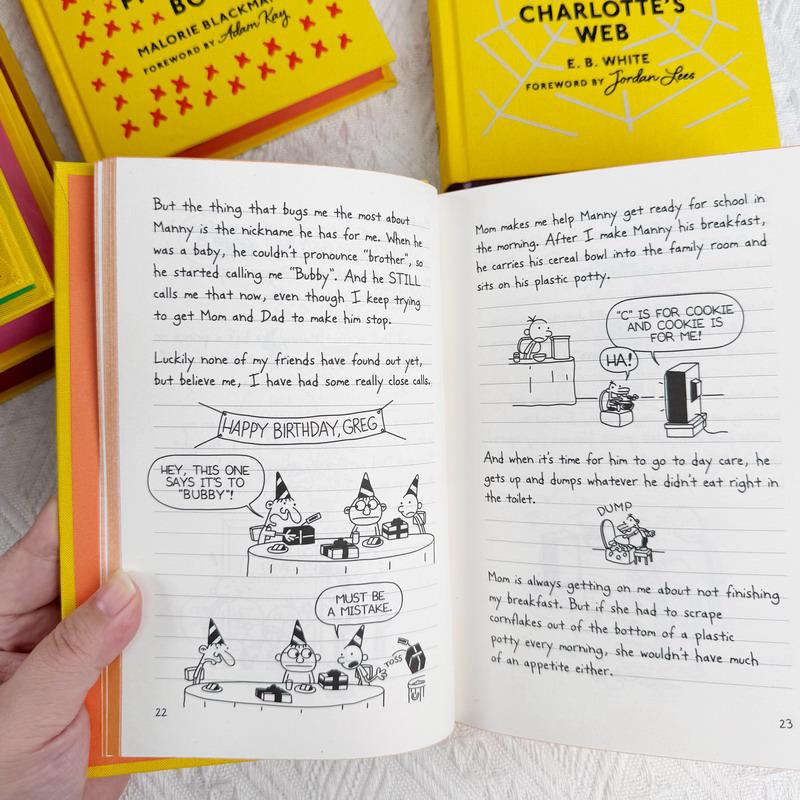 BO
MALORIE BLACKMAN
FOREWORD BY Adam Kay
CHARLOTTE'S
WEB
E. B. WHITE
FOREWORD BY Jordan Lees
But the thing that bugs me the most about
Manny is the nickname he has for me. When he
was a baby, he couldn't pronounce "brother", so
he started calling me "Bubby". And he STILL
calls me that now, even though I keep trying
to get Mom and Dad to make him stop.
Luckily none of my friends have found out yet,
but believe me, I have had some really close calls.
HAPPY BIRTHDAY, GREG
HEY, THIS ONE
SAYS IT'S TO
"BUBBY"!
MUST BE
A MISTAKE.
TOSS
22
Mom makes me help Manny get ready for school in
the morning. After I make Manny his breakfast,
he carries his cereal bowl into the family room and
sits on his plastic potty.
"C" IS FOR COOKIE
AND COOKIE IS
FOR ME!
HA!
And when it's time for him to go to day care, he
gets up and dumps whatever he didn't eat right in
the toilet.
DUMP
Mom is always getting on me about not finishing
my breakfast. But if she had to scrape
cornflakes out of the bottom of a plastic
potty every morning, she wouldn't have much
of an appetite either.
23